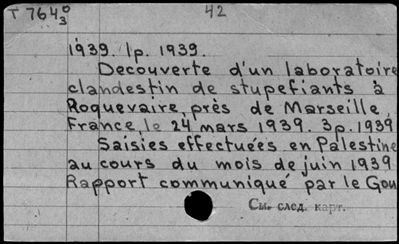 T 764 0/3 42
1939. 1p. 1939.
Decouverte d'un laboratoire
clandestin de stupefiants à
Roquevaire, près de Marseille,
France, le 24 mars 1939. 3p. 1939
Saisies effectuées en Palestine
au cours du mois de juin 1939
Rapport communiqué par le Gou
См. след. карт.